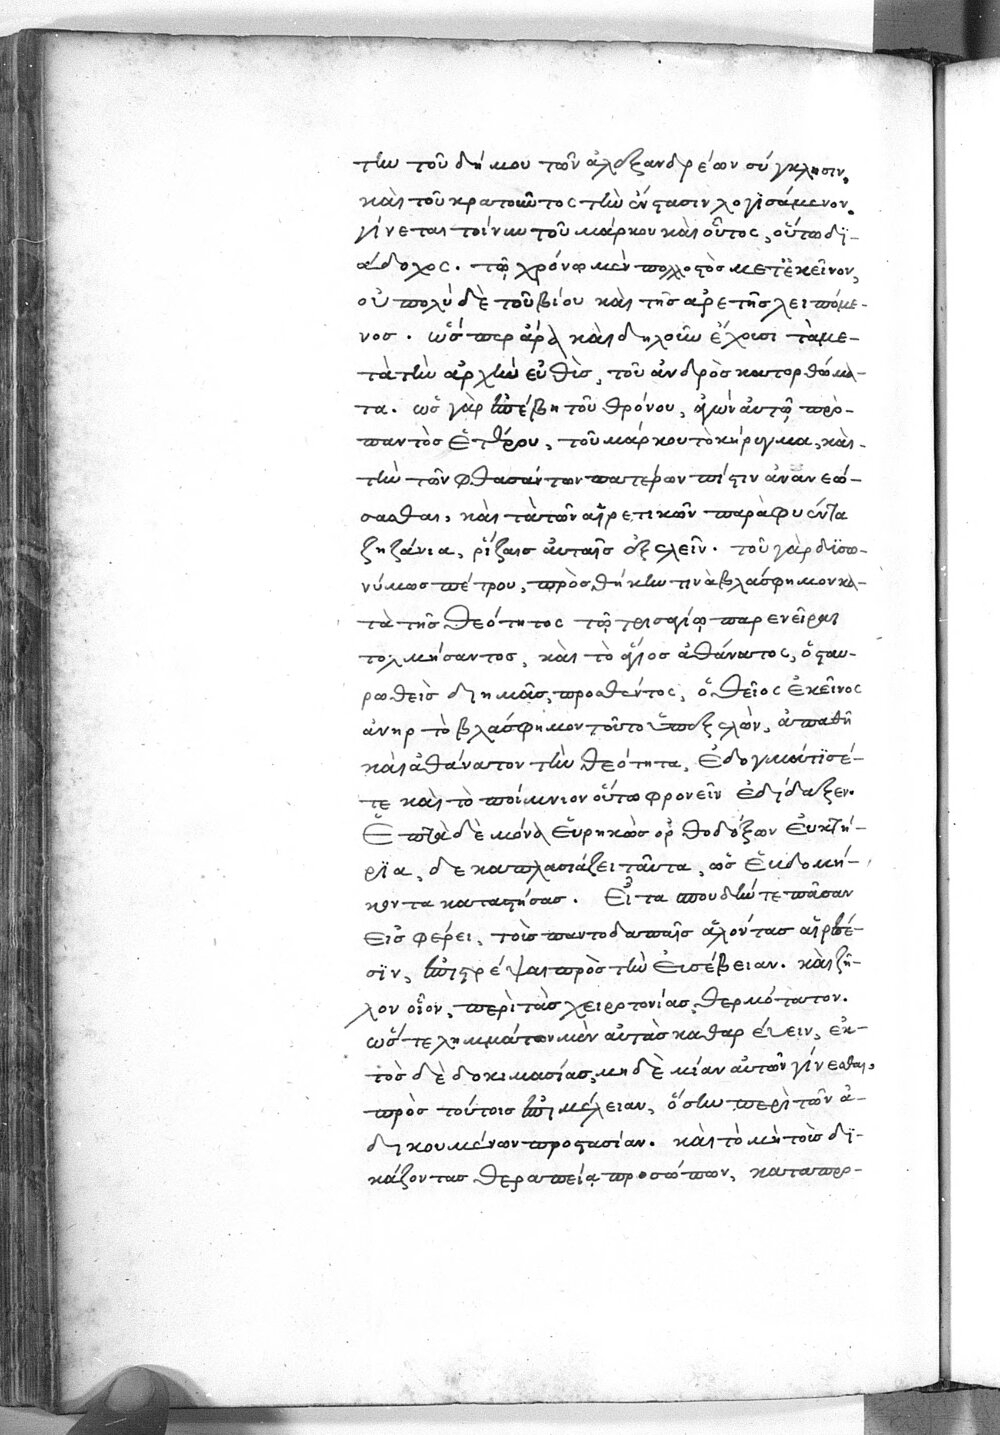 τὴν τοῦ δήμου τῶν ἀλεξανδρέων σύγκλησιν,
καὶ τοῦ κρατοῦντος τὴν ἔνστασιν λογισάμενον.
γίνεται τοίνυν τοῦ μάρκου καὶ οὗτος, οὕτω δϊ-
άδοχος. τῷ χρόνῳ μὲν πολλοστὸς μετ' ἐκεῖνον,
οὐ πολὺ δὲ τοῦ βίου καὶ τῆς ἀρετῆς λειπόμε-
νος. ὥσπερ ἄρα καὶ δηλοῦν ἔχουσι τὰ με-
τὰ τὴν ἀρχὴν εὐθὺς, τοῦ ἀνδρὸς κατορθώμα-
τα. ὡς γὰρ ἐπέβη τοῦ θρόνου, ἀγὼν αὐτῷ πρὸ
παντὸς ἑτέρου, τοῦ μάρκου τὸ κήρυγμα, καὶ
τὴν τῶν φθασάντων πατέρων πίστιν ἀνανεώ-
σασθαι, καὶ τὰ τῶν αἱρετικῶν παραφυέντα
ζηζάνια, ῥίζαις αὐταῖς ἐξελεῖν. τοῦ γὰρ δϊσω-
νύμως πέτρου, προσθήκην τινὰ βλάσφημον κα-
τὰ τῆς θεότητος τῷ τρισαγίῳ παρενεῖραι
τολμήσαντος, καὶ τὸ ἅγιος ἀθάνατος, ὁ σταυ-
ρωθεὶς δι ἡμᾶς, προσθέντος, ὁ θεῖος ἐκεῖνος
ἀνὴρ τὸ βλάσφημον τοῦτο ὑπεξελὼν, ἀπαθῆ
καὶ ἀθάνατον τὴν θεότητα, ἐδογμάτισέ-
τε καὶ τὸ ποίμνιον οὕτω φρονεῖν ἐδίδαξεν.
Ἑπτὰ δὲ μόνα εὑρηκὼς ὀρθοδόξων εὐκτή-
ρϊα, δεκαπλασιάζει ταῦτα, ὡς ἑβδομή-
κοντα καταστήσας. Εἶτα σπουδήν τε πᾶσαν
εἰσφέρει, τοὺς παντοδαπαῖς ἁλόντας αἱρέ-
σϊν, ἐπιστρέψαι πρὸς τὴν εὐσέβειαν. καὶ ζῆ-
λον οἷον, περὶ τὰς χειροτονίας, θερμότατον.
ὥστε λημμάτων μὲν αὐτὰς καθαρεύειν, ἐκ-
τὸς δὲ δοκιμασίας, μηδὲ μίαν αὐτῶν γίνεσθαι,
πρὸς τούτοις ἐπιμέλειαν, ὅσην περὶ τῶν ἀ-
δικουμένων προστασίαν. καὶ τὸ μὴ τοὺς δϊ-
κάζοντας θεραπείᾳ προσώπων, καταπρο-